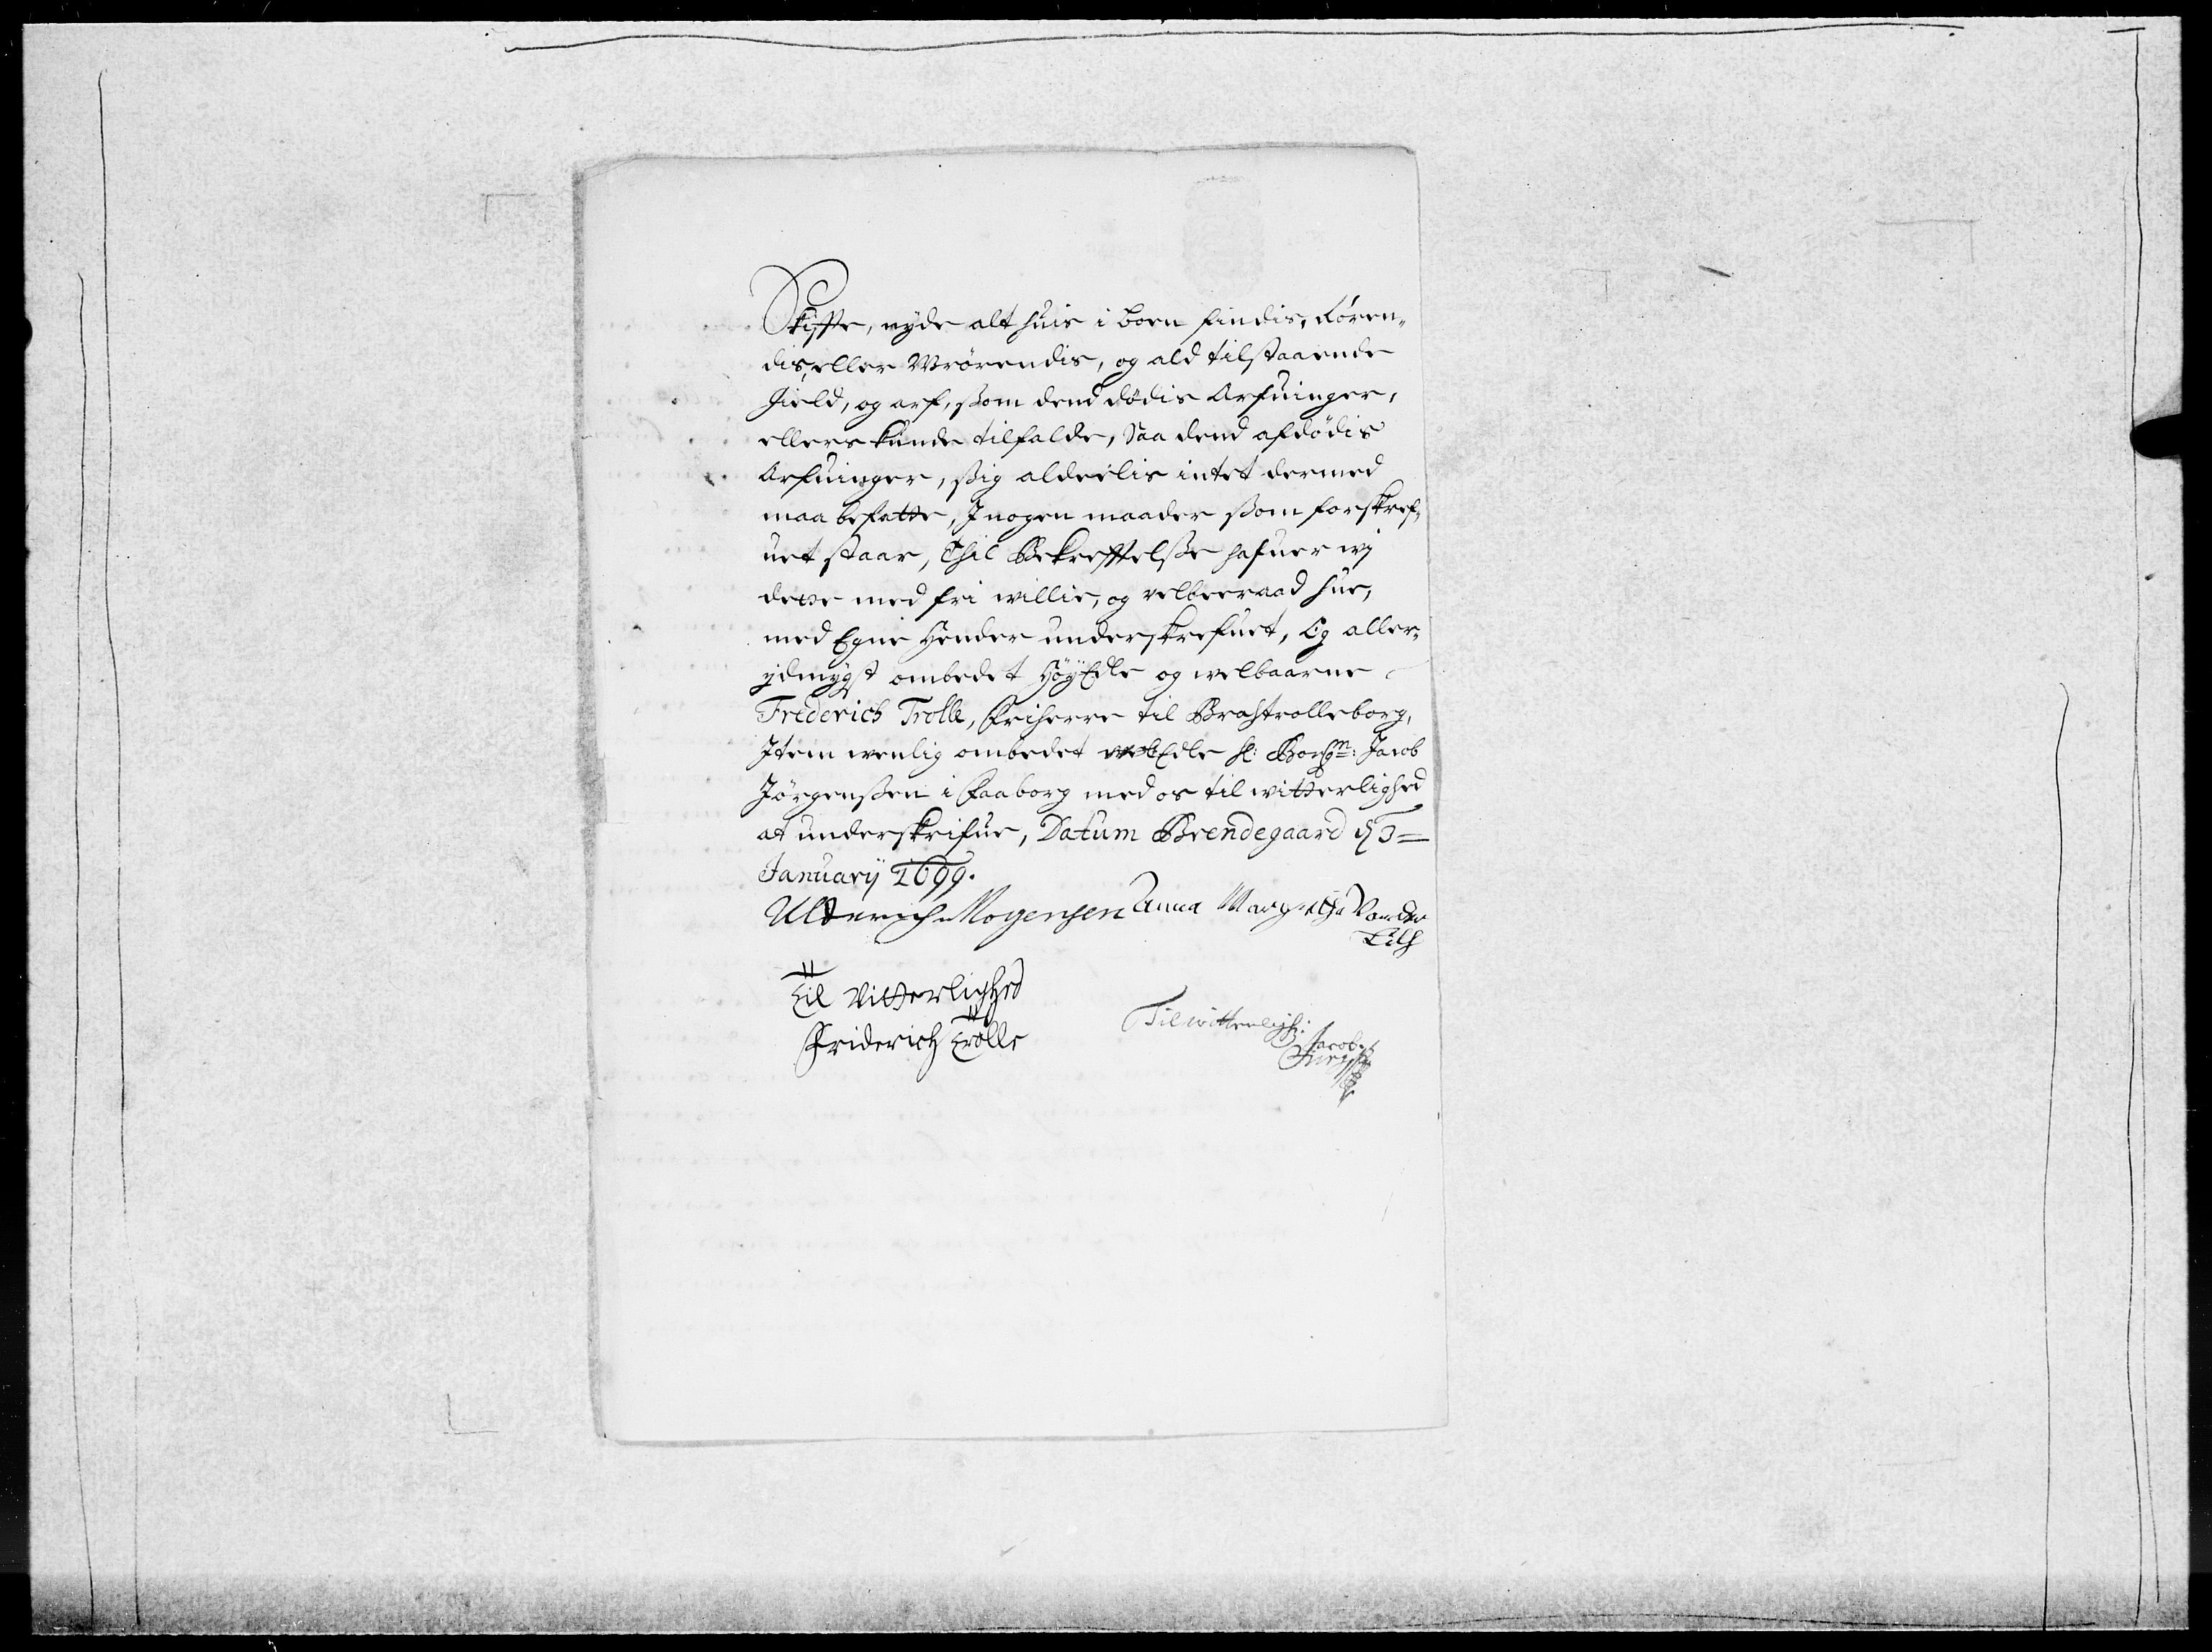 Skiffte, nyde alt huis i boen findis, Røren¬
dis, eller Wrørendis, og ald tilstaaende
Gield, og arf, ßom dend dødis Arfuinger,
ellers kunde tilfalde, Saa dend afdødis
Arfuinger, ßig alderlis intet dermed
maa befatte, I nogen maader ßom forskref¬
uet staar, Thil Bekrefftelße hafuer wj
dette med fri willie, og velberaad hue,
med Egne Hender underskrefuet, Og aller¬
ydmygst ombedet HøyEdle og welbaarne
Frederich Trolle, Friherre til Brahtrolleborg,
Item wenlig ombedet welEdle Hr: Borgm: Jacob
Jørgenßen i Faaborg med os til witterlighed
at underskrifue, Datum Brendegaard d 3=
Januarij 1699.
Ulderich Mogensen Anna Margretha Vonder
Lilh
Til Vitterlighed
Friderich Trolle
Til witterligh:
Jacob